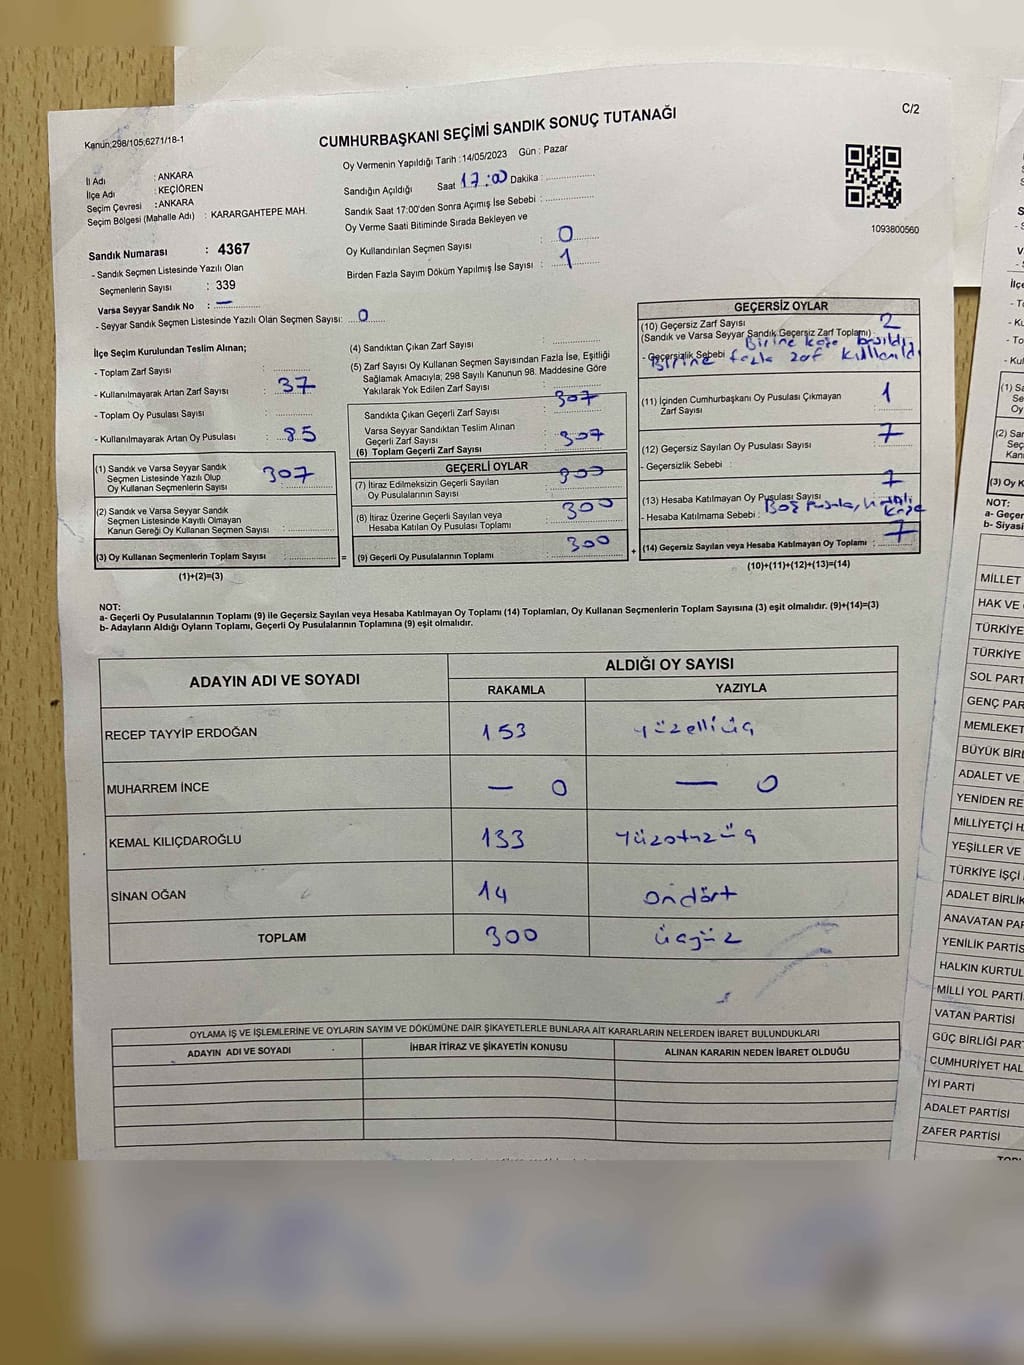 C/2
Kanun;298/105;6271/18-1
CUMHURBAŞKANI SEÇİMİ SANDIK SONUÇ TUTANAĞI
Oy Vermenin Yapıldığı Tarih : 14/05/2023 Gün : Pazar
İl Adı : ANKARA
İlçe Adı : KEÇİÖREN
Seçim Çevresi : ANKARA
Seçim Bölgesi (Mahalle Adı) : KARARGAHTEPE MAH.
Sandığın Açıldığı Saat 17:00 Dakika :
Sandık Saat 17:00'den Sonra Açımış İse Sebebi :
Oy Verme Saati Bitiminde Sırada Bekleyen ve
Oy Kullandırılan Seçmen Sayısı : 0
Birden Fazla Sayım Döküm Yapılmış İse Sayısı : 1
1093800560
Sandık Numarası : 4367
- Sandık Seçmen Listesinde Yazılı Olan
Seçmenlerin Sayısı : 339
Varsa Seyyar Sandık No : —
- Seyyar Sandık Seçmen Listesinde Yazılı Olan Seçmen Sayısı: 0
İlçe Seçim Kurulundan Teslim Alınan;
- Toplam Zarf Sayısı :
- Kullanılmayarak Artan Zarf Sayısı : 37
- Toplam Oy Pusulası Sayısı :
- Kullanılmayarak Artan Oy Pusulası : 85
(1) Sandık ve Varsa Seyyar Sandık
Seçmen Listesinde Yazılı Olup
Oy Kullanan Seçmenlerin Sayısı : 307
(2) Sandık ve Varsa Seyyar Sandık
Seçmen Listesinde Kayıtlı Olmayan
Kanun Gereği Oy Kullanan Seçmen Sayısı :
(3) Oy Kullanan Seçmenlerin Toplam Sayısı :
(1)+(2)=(3)
(4) Sandıktan Çıkan Zarf Sayısı :
(5) Zarf Sayısı Oy Kullanan Seçmen Sayısından Fazla İse, Eşitliği
Sağlamak Amacıyla; 298 Sayılı Kanunun 98. Maddesine Göre
Yakılarak Yok Edilen Zarf Sayısı :
Sandıkta Çıkan Geçerli Zarf Sayısı : 307
Varsa Seyyar Sandıktan Teslim Alınan
Geçerli Zarf Sayısı :
(6) Toplam Geçerli Zarf Sayısı : 307
GEÇERLİ OYLAR
(7) İtiraz Edilmeksizin Geçerli Sayılan
Oy Pusulalarının Sayısı : 300
(8) İtiraz Üzerine Geçerli Sayılan veya
Hesaba Katılan Oy Pusulaları Toplamı : 300
= (9) Geçerli Oy Pusulalarının Toplamı : 300
GEÇERSİZ OYLAR
(10) Geçersiz Zarf Sayısı
(Sandık ve Varsa Seyyar Sandık Geçersiz Zarf Toplamı) : 2
- Geçersizlik Sebebi : Birine kaşe basıldı,
Birine fazla zarf kullanıldı
(11) İçinden Cumhurbaşkanı Oy Pusulası Çıkmayan
Zarf Sayısı : 1
(12) Geçersiz Sayılan Oy Pusulası Sayısı : 7
- Geçersizlik Sebebi :
(13) Hesaba Katılmayan Oy Pusulası Sayısı : 7
- Hesaba Katılmama Sebebi : Boş pusula, kaşe
+ (14) Geçersiz Sayılan veya Hesaba Katılmayan Oy Toplamı : 7
(10)+(11)+(12)+(13)=(14)
NOT:
a- Geçerli Oy Pusulalarının Toplamı (9) ile Geçersiz Sayılan veya Hesaba Katılmayan Oy Toplamı (14) Toplamları, Oy Kullanan Seçmenlerin Toplam Sayısına (3) eşit olmalıdır. (9)+(14)=(3)
b- Adayların Aldığı Oyların Toplamı, Geçerli Oy Pusulalarının Toplamına (9) eşit olmalıdır.
ADAYIN ADI VE SOYADI ALDIĞI OY SAYISI
RAKAMLA YAZIYLA
RECEP TAYYİP ERDOĞAN 153 yüzelliüç
MUHARREM İNCE — 0 — 0
KEMAL KILIÇDAROĞLU 133 yüzotuzüç
SİNAN OĞAN 14 ondört
TOPLAM 300 üçyüz
OYLAMA İŞ VE İŞLEMLERİNE VE OYLARIN SAYIM VE DÖKÜMÜNE DAİR ŞİKAYETLERLE BUNLARA AİT KARARLARIN NELERDEN İBARET BULUNDUKLARI
ADAYIN ADI VE SOYADI İHBAR İTİRAZ VE ŞİKAYETİN KONUSU ALINAN KARARIN NEDEN İBARET OLDUĞU
NOT:
a- Geçer
b- Siyasi
MİLLET
HAK VE
TÜRKİYE
TÜRKİYE
SOL PART
GENÇ PAR
MEMLEKET
BÜYÜK BİRL
ADALET VE
YENİDEN RE
MİLLİYETÇİ H
YEŞİLLER VE
TÜRKİYE İŞÇİ
ADALET BİRLİK
ANAVATAN PAR
YENİLİK PARTİS
HALKIN KURTUL
MİLLİ YOL PARTİ
VATAN PARTİSİ
GÜÇ BİRLİĞİ PAR
CUMHURİYET HAL
İYİ PARTİ
ADALET PARTİSİ
ZAFER PARTİSİ